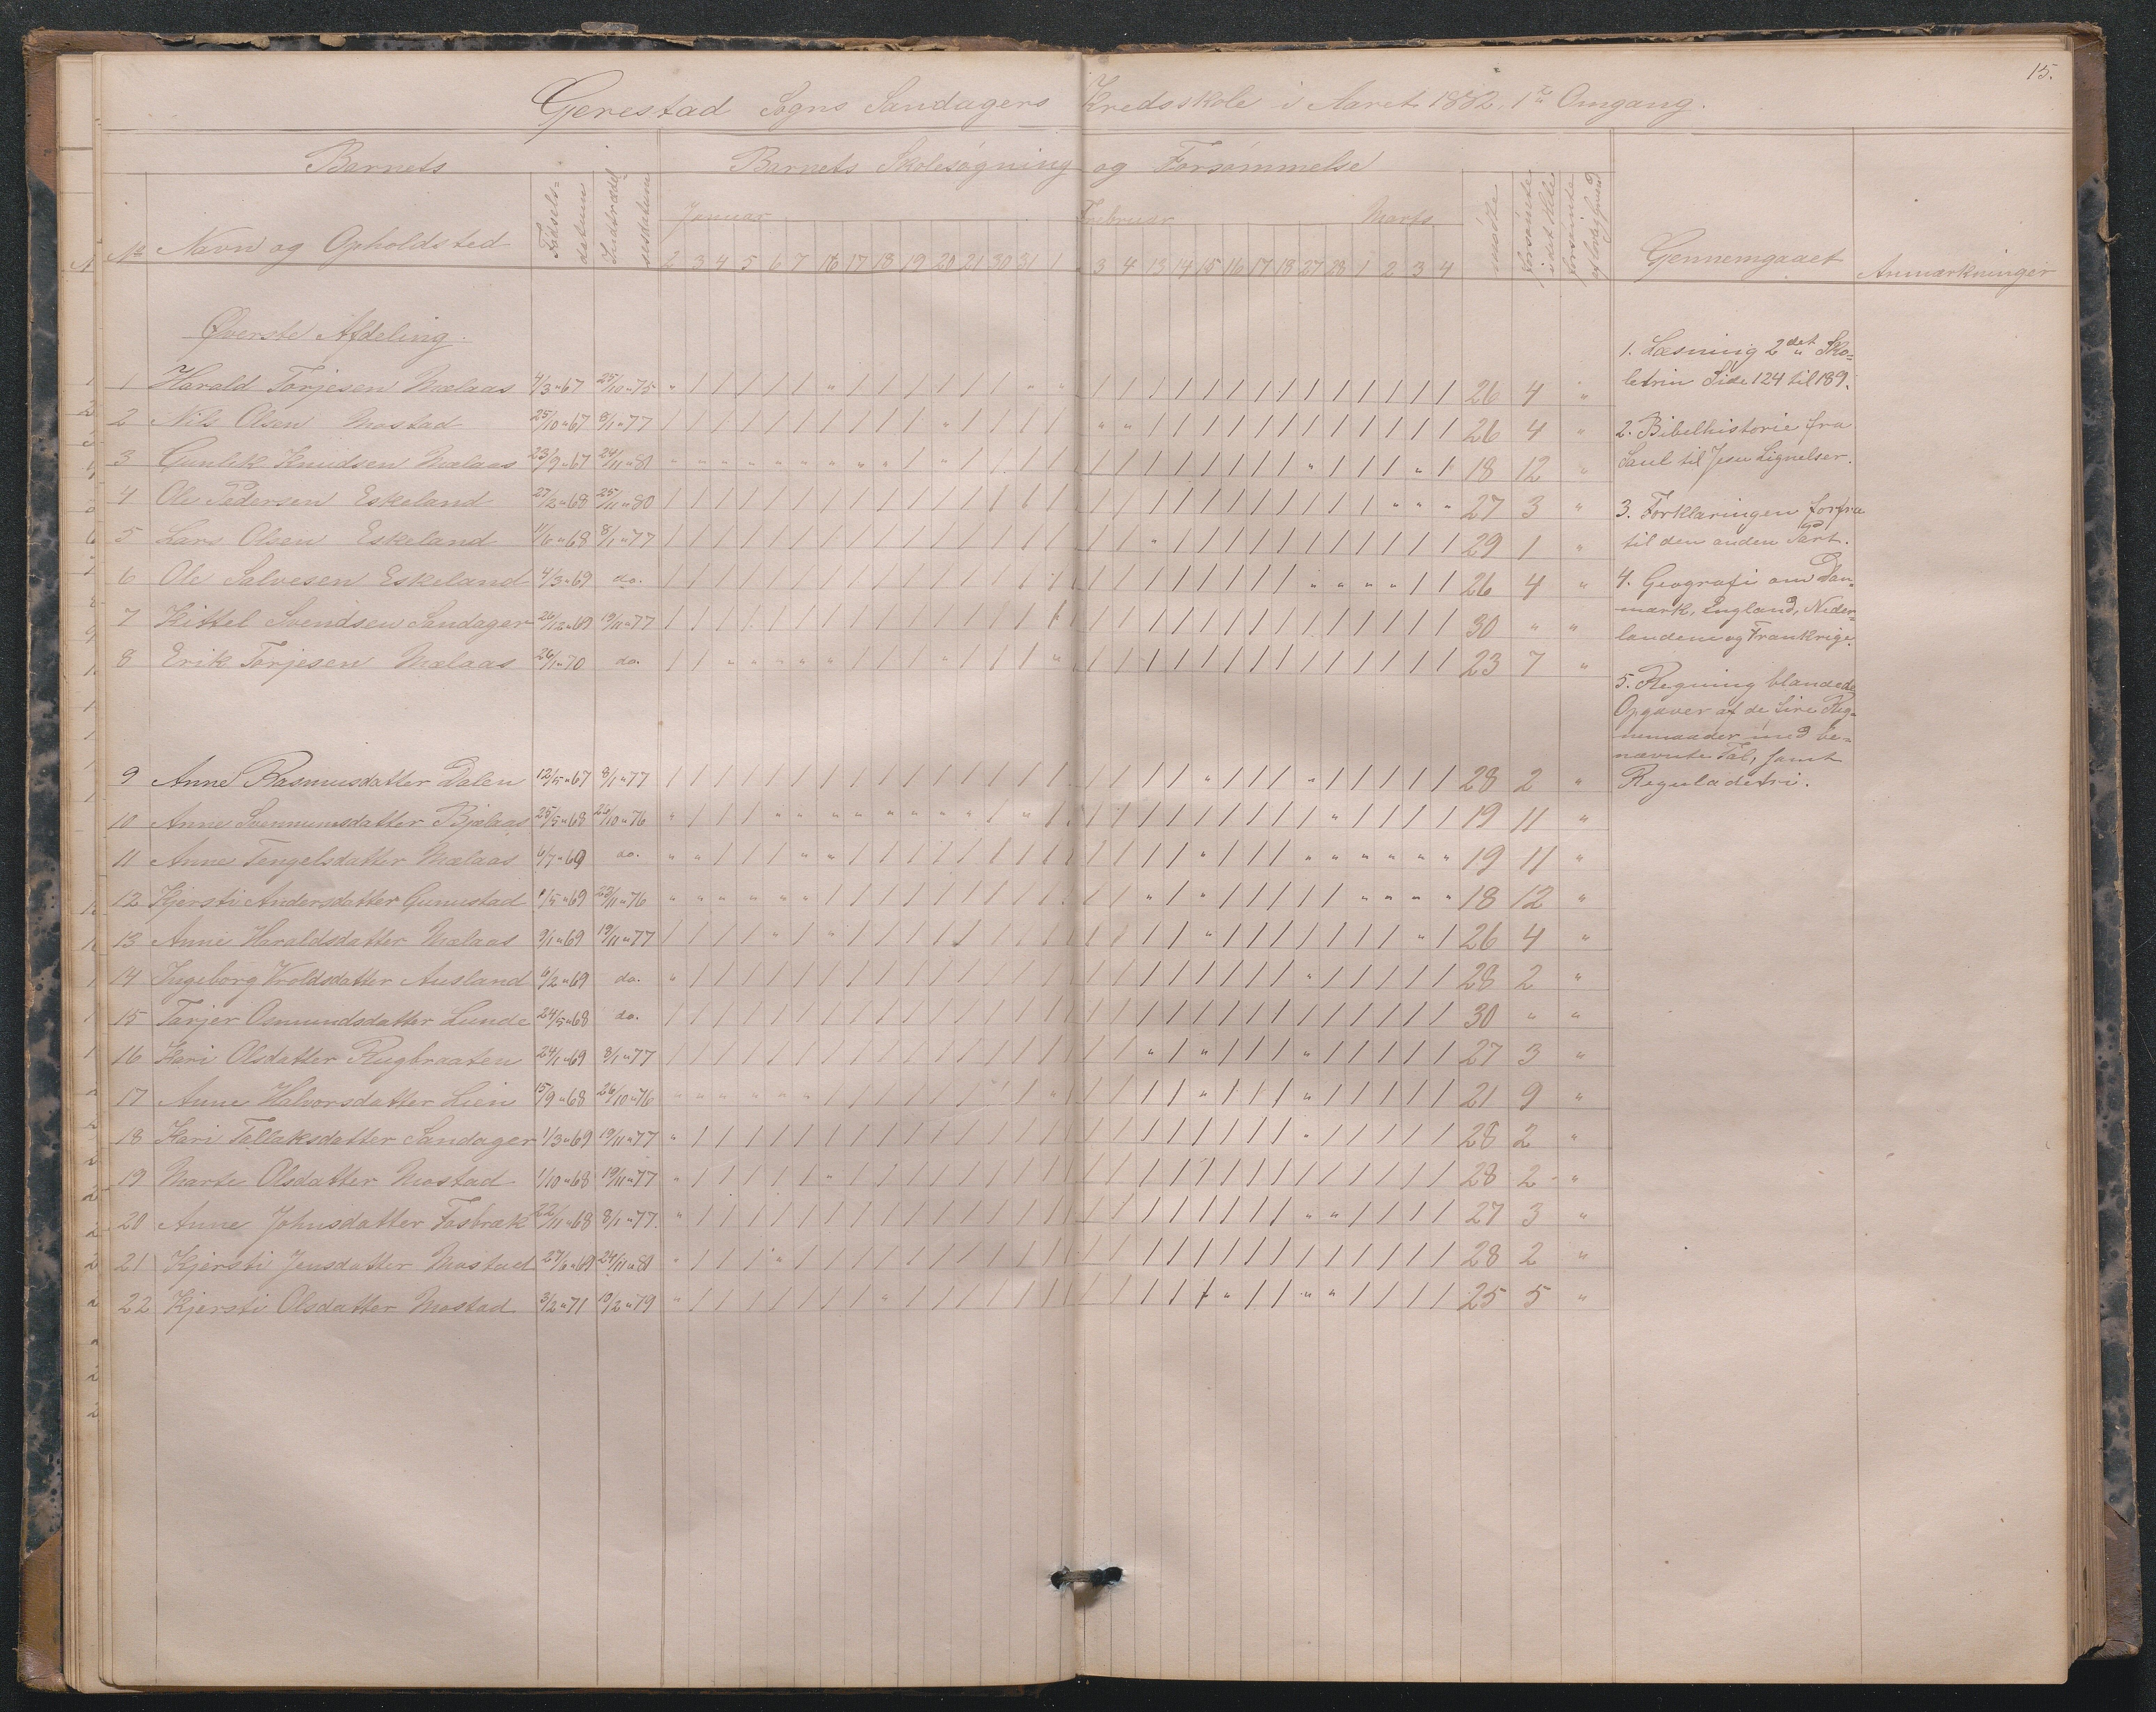 15.
Gerestad Sogns Sandagers Kredsskole i Aaret 1882. 1ste Omgang.
Barnets
Barnets Skolesøgning og Forsømmelse
No Navn og Opholdsted Fødsels=datum Indtrædelsesdatum
Januar Februar Marts
2 3 4 5 6 7 16 17 18 19 20 21 30 31 1 3 4 13 14 15 16 17 18 27 28 1 2 3 4
forsømte i det Hele
Gennemgaaet
Anmærkninger
Øverste Afdeling.
1 Harald Torjesen Mælaas 4/3 " 67 25/10 " 75 26 4 "
2 Nils Olsen Mostad 25/10 " 67 8/1 " 77 26 4 "
3 Gunlek Knudsen Mælaas 23/9 " 67 24/11 " 81 18 12 "
4 Ole Pedersen Eskeland 27/2 " 68 25/11 " 80 27 3 "
5 Lars Olsen Eskeland 11/6 " 68 8/1 " 77 29 1 "
6 Ole Salvesen Eskeland 4/3 " 69 do. 26 4 "
7 Kittel Svendsen Sandager 26/12 " 69 19/11 " 77 30 " "
8 Erik Torjesen Mælaas 26/1 " 70 do. 23 7 "
9 Anne Rasmusdatter Dalen 12/5 " 67 8/1 " 77 28 2 "
10 Anne Bjælaas 25/5 " 68 26/10 " 76 19 11 "
11 Anne Tengelsdatter Mælaas 6/7 " 69 do. 19 11 "
12 Kjersti Andersdatter Gunustad 23/11 " 76 18 12 "
13 Anne Haraldsdatter Mælaas 9/1 " 69 19/11 " 77 26 4 "
14 Ingeborg Wroldsdatter Ausland 6/2 " 69 do. 28 2 "
15 Tarjer Osmundsdatter Lunde 24/5 " 68 do. 30 " "
16 Kari Olsdatter Rugbraaten 24/1 " 69 8/1 " 77 27 3 "
17 Anne Halvorsdatter Lien 15/9 " 68 26/10 " 76 21 9 "
18 Kari Tallaksdatter Sandager 1/3 " 69 19/11 " 77 28 2 "
19 Marte Olsdatter Mostad 1/10 " 68 19/11 " 77 28 2 "
20 Anne Johnsdatter Fosbræk 22/11 " 68 8/1 " 77 27 3 "
21 Kjersti Jensdatter Mostad 27/6 " 69 24/11 " 81 28 2 "
22 Kjersti Olsdatter Mostad 3/2 " 71 19/2 " 79 25 5 "
1. Læsning 2det Sko=
letrin Side 124 til 189.
2. Bibelhistorie fra
Saul til Jesu Lignelser.
3. Forklaringen forfra
til den anden Part.
4. Geografi om Dan=
mark, England, Neder=
landene og Frankrige.
5. Regning blandede
Opgaver af de fire Reg=
nemaader med be=
nævnte Tal, samt
Reguladetri.